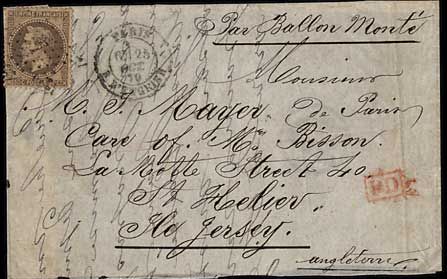 EMPIRE FRANÇAIS
PARIS
25
OCT
70
Par Ballon Monté
Monsieur
M. S. Mayer de Paris
Care of Mr Bisson
La Motte Street 40
St Helier
Ile Jersey.
angleterre
P.D.